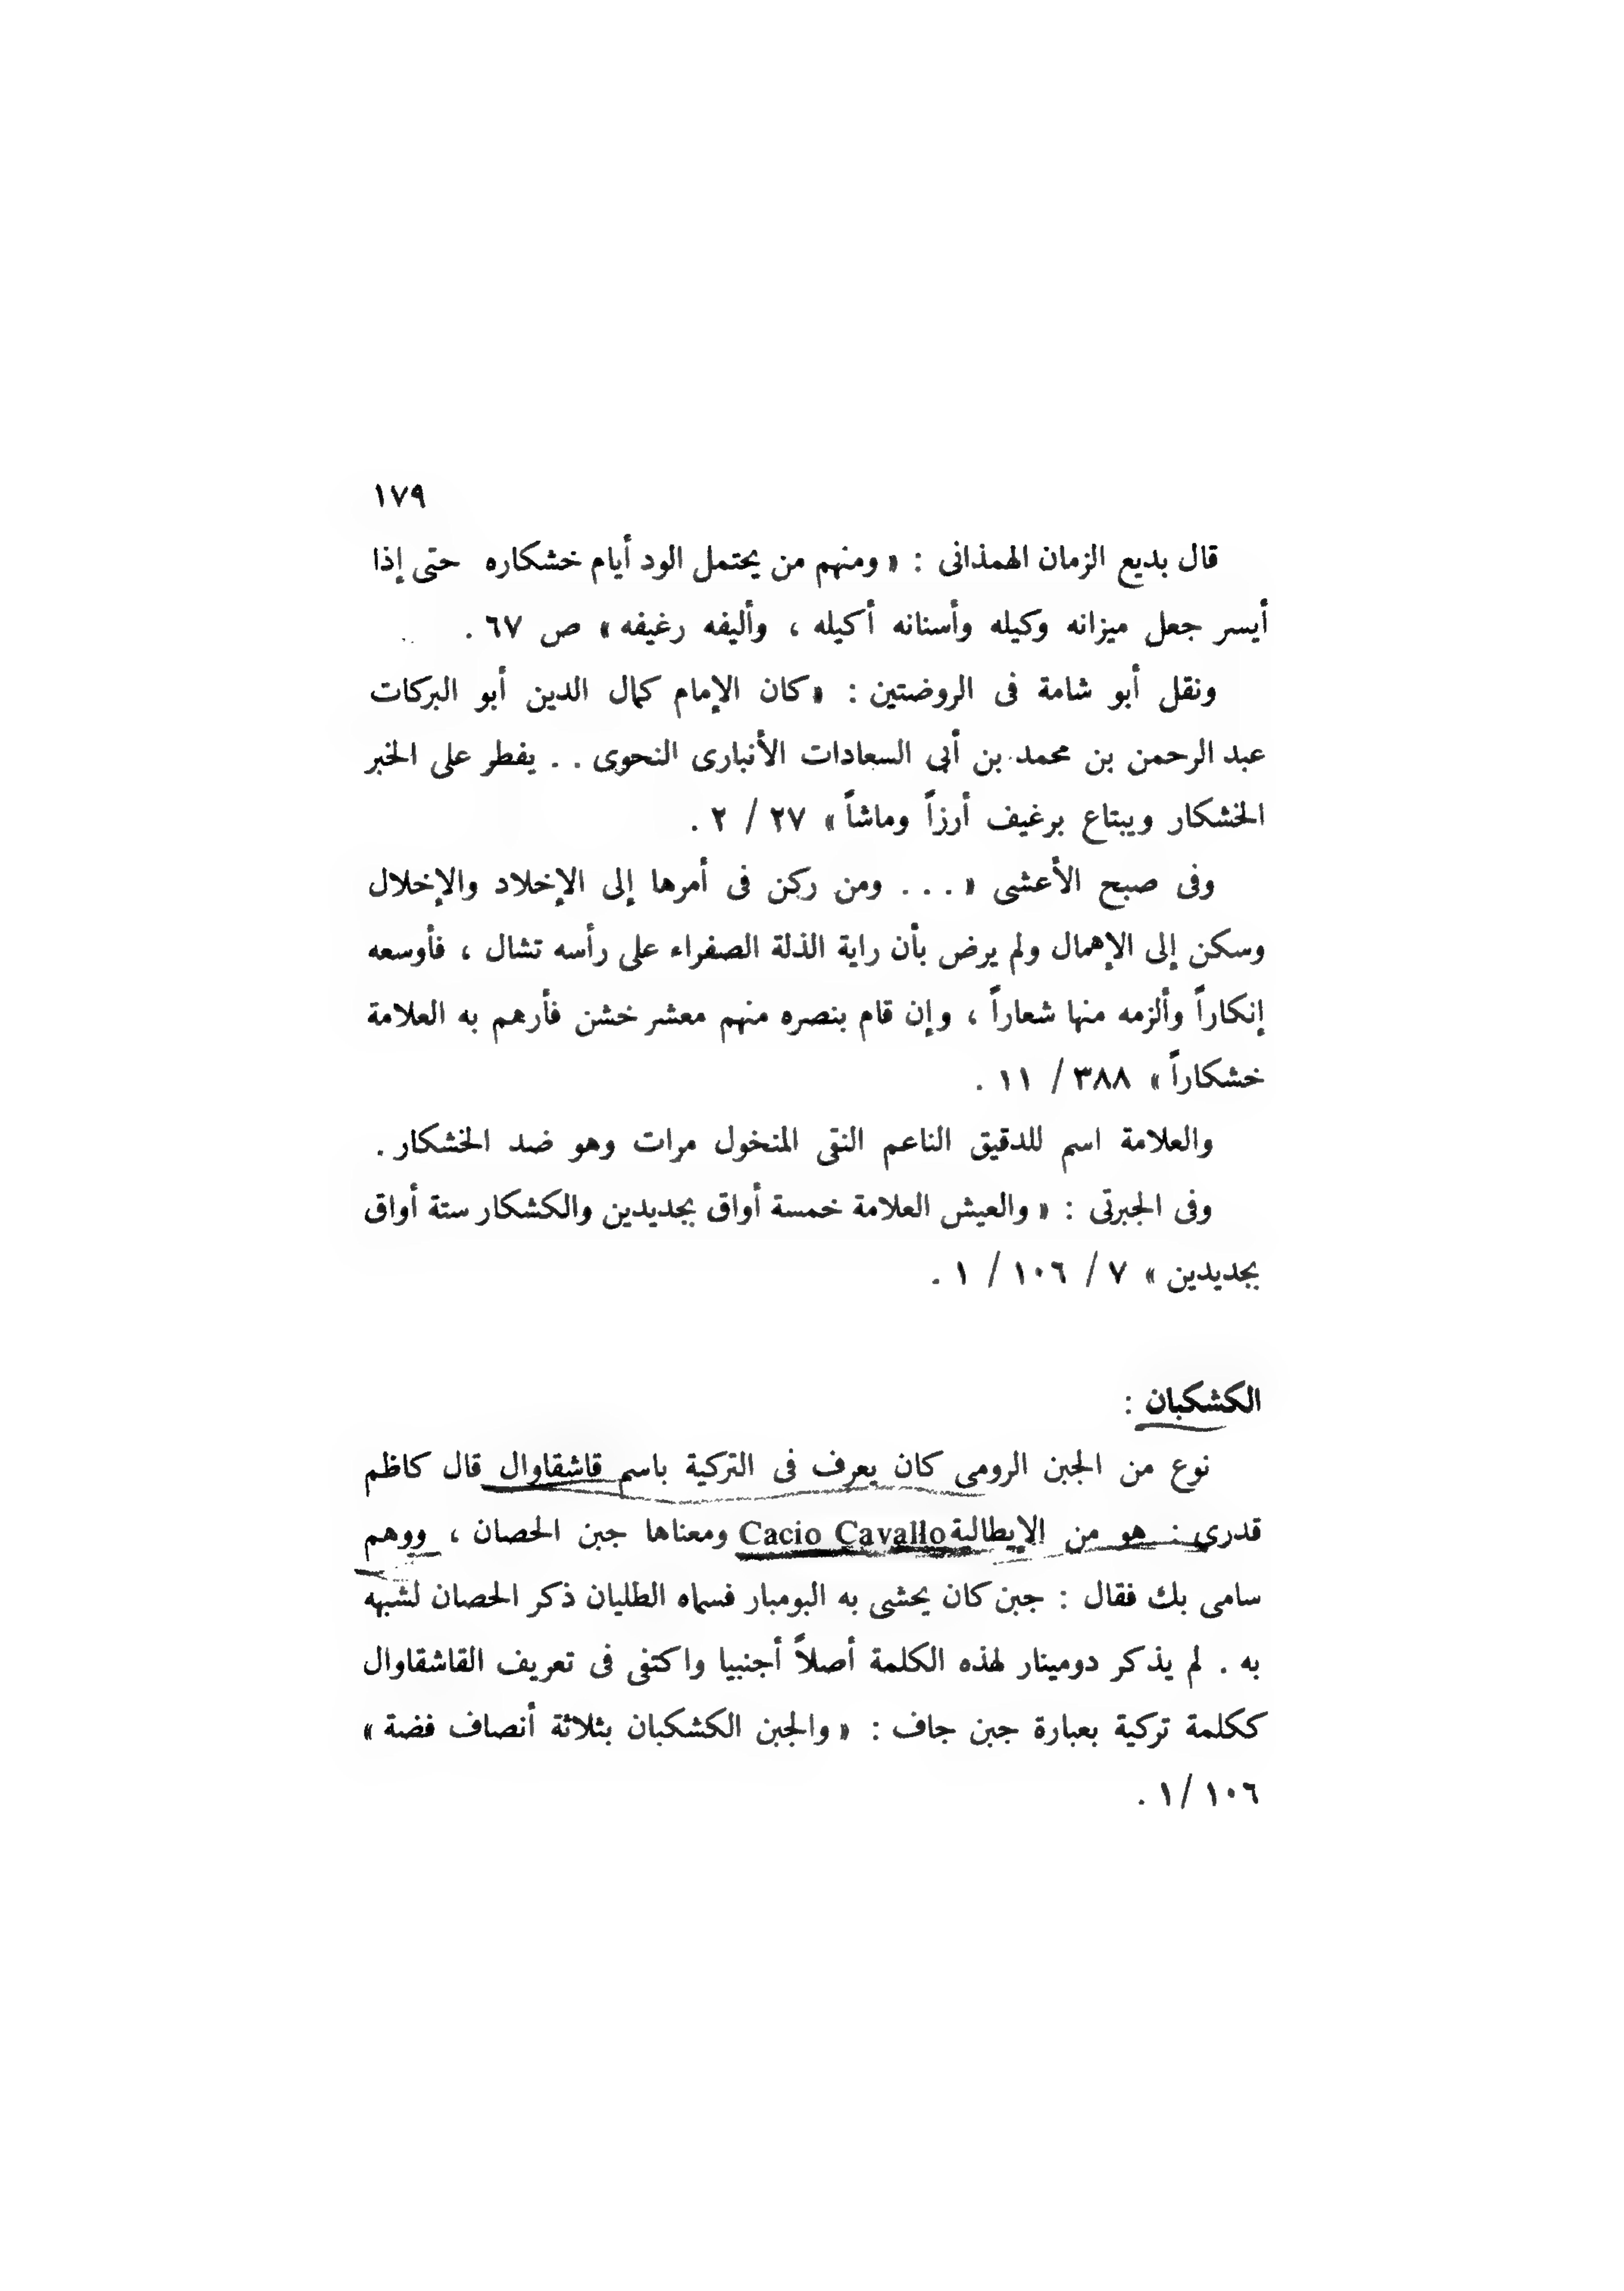 ١٧٩
قال بديع الزمان الهمذانى : « ومنهم من يحتمل الود أيام خشكاره حتى إذا
أيسر جعل ميزانه وكيله وأسنانه أكيله ، وأليفه رغيفه » ص ٦٧ .
ونقل أبو شامة فى الروضتين : « كان الإمام كمال الدين أبو البركات
عبد الرحمن بن محمد بن أبى السعادات الأنبارى النحوى . . يفطر على الخبر
الخشكار ويبتاع برغيف أرزاً وماشاً » ٢٧ / ٢ .
وفى صبح الأعشى « . . . ومن ركن فى أمرها إلى الإخلاد والإخلال
وسكن إلى الإهمال ولم يرض بأن راية الذلة الصفراء على رأسه تشال ، فأوسعه
إنكاراً وألزمه منها شعاراً ، وإن قام بنصره منهم معشر خشن فأرهم به العلامة
خشكاراً » ٣٨٨ / ١١ .
والعلامة اسم للدقيق الناعم النقى المنخول مرات وهو ضد الخشكار .
وفى الجبرتى : « والعيش العلامة خمسة أواق بجديدين والكشكار ستة أواق
بجديدين » ٧ / ١٠٦ / ١ .
الكشكبان :
نوع من الجبن الرومى كان يعرف فى التركية باسم قاشقاوال قال كاظم
قدرى : هو من الإيطالية Cacio Cavallo ومعناها جبن الحصان ، ووهم
سامى بك فقال : جبن كان يحشى به البومبار فسماه الطليان ذكر الحصان لشبهه
به . لم يذكر دومينار لهذه الكلمة أصلاً أجنبيا واكتفى فى تعريف القاشقاوال
ككلمة تركية بعبارة جبن جاف : « والجبن الكشكبان بثلاثة أنصاف فضة »
١٠٦ / ١ .